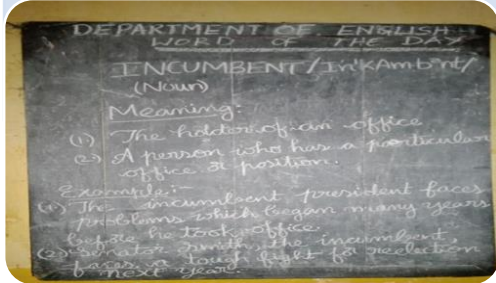 DEPARTMENT OF ENGLISH
WORD OF THE DAY
INCUMBENT/In'kAmbənt/
(Noun)
Meaning:
(1) The holder of an office
(2) A person who has a particular
office or position.
Example:-
(1) The incumbent president faces
problems which began many years
before he took office.
(2) Senator Smith, the incumbent,
faces a tough fight for reelection
next year.